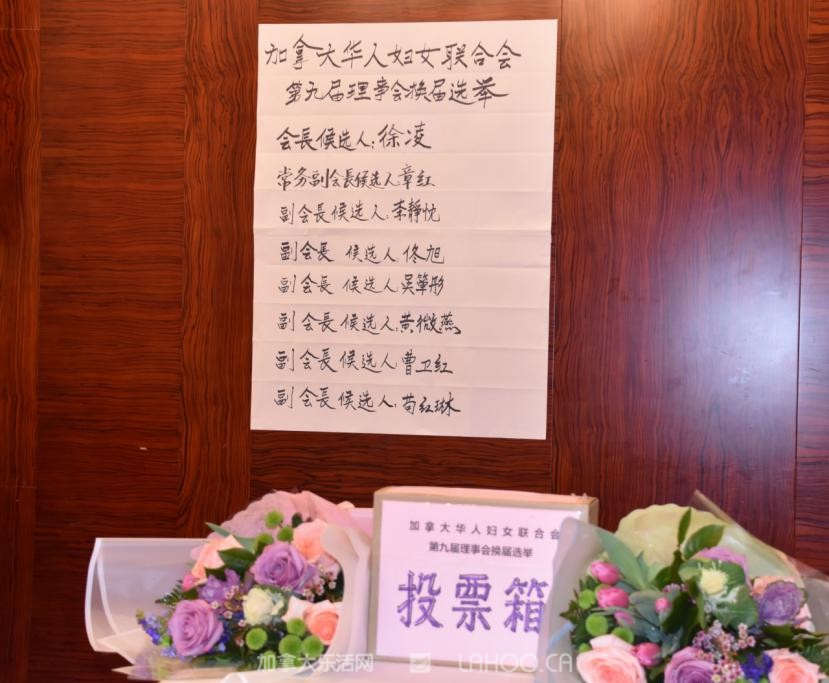 加拿大华人妇女联合会
第九届理事会换届选举
会長候选人:徐凌
常务副会長候选人:章红
副会長候选人:李静忱
副会長 候选人:佟旭
副会長 候选人:吴箪彤
副会長 候选人:黄微燕
副会長候选人:曹卫红
副会長候选人:苟红琳
加拿大华人妇女联合会
第九届理事会换届选举
投票箱
加拿大乐活网 LAHOO.CA